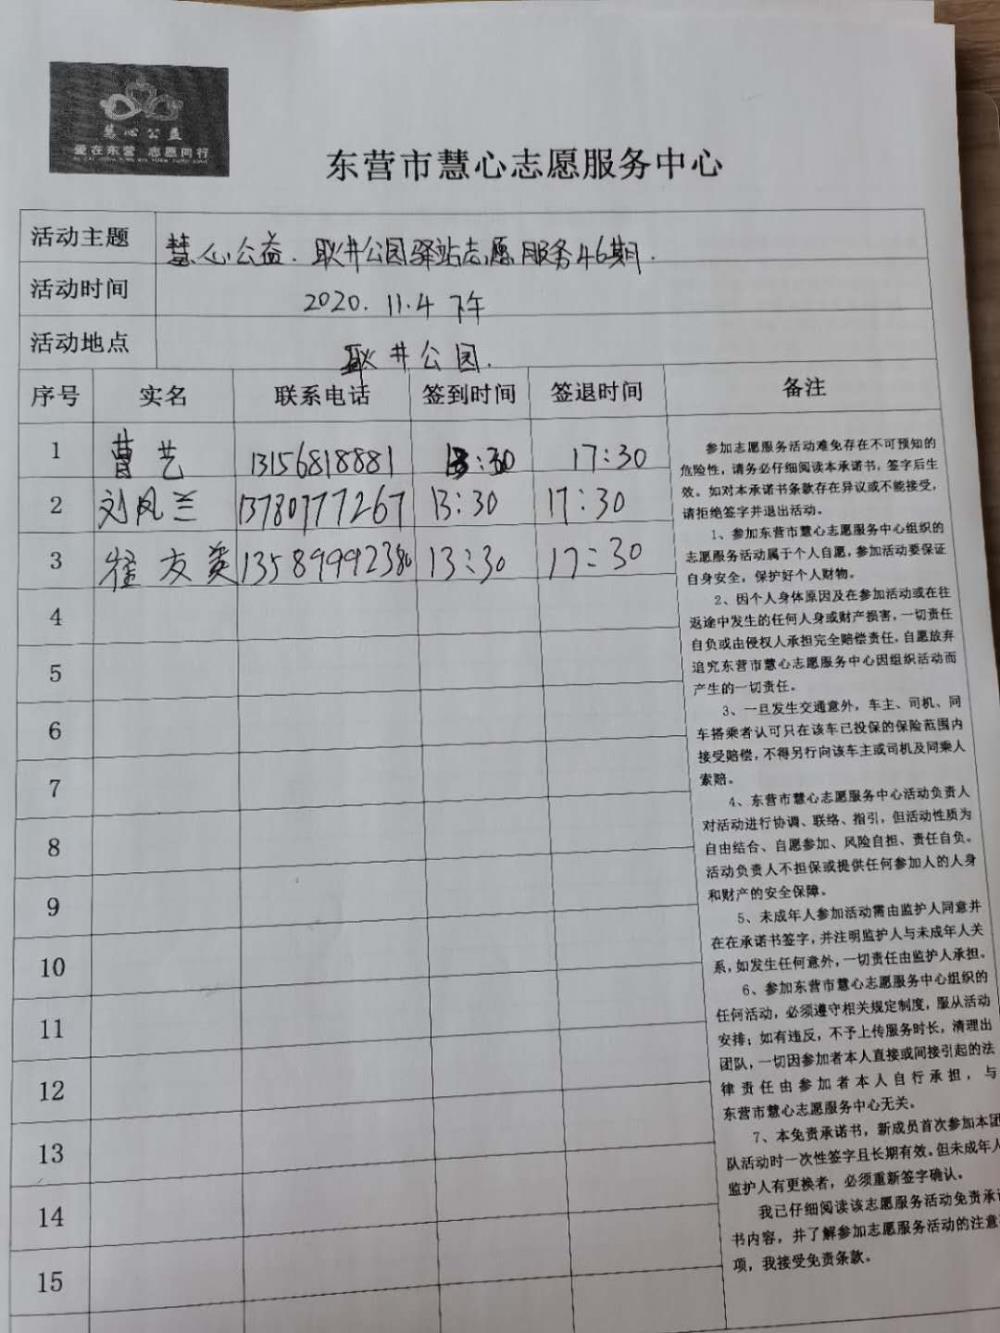 慧心公益
爱在东营 志愿同行
东营市慧心志愿服务中心
活动主题 慧心公益.耿井公园驿站志愿服务46期.
活动时间 2020.11.4 下午
活动地点 耿井公园.
序号 实名 联系电话 签到时间 签退时间 备注
1 曹艺 13156818881 13:30 17:30
2 刘凤兰 13780777267 13:30 17:30
3 崔友英 13589992380 13:30 17:30
4
5
6
7
8
9
10
11
12
13
14
15
参加志愿服务活动难免存在不可预知的
危险性，请务必仔细阅读本承诺书，签字后生
效。如对本承诺书条款存在异议或不能接受，
请拒绝签字并退出活动。
1、参加东营市慧心志愿服务中心组织的
志愿服务活动属于个人自愿，参加活动要保证
自身安全，保护好个人财物。
2、因个人身体原因及在参加活动或在往
返途中发生的任何人身或财产损害，一切责任
自负或由侵权人承担完全赔偿责任，自愿放弃
追究东营市慧心志愿服务中心因组织活动而
产生的一切责任。
3、一旦发生交通意外，车主、司机、同
车搭乘者认可只在该车已投保的保险范围内
接受赔偿，不得另行向该车主或司机及同乘人
索赔。
4、东营市慧心志愿服务中心活动负责人
对活动进行协调、联络、指引，但活动性质为
自由结合、自愿参加、风险自担、责任自负。
活动负责人不担保或提供任何参加人的人身
和财产的安全保障。
5、未成年人参加活动需由监护人同意并
在在承诺书签字，并注明监护人与未成年人关
系，如发生任何意外，一切责任由监护人承担。
6、参加东营市慧心志愿服务中心组织的
任何活动，必须遵守相关规定制度，服从活动
安排；如有违反，不予上传服务时长，清理出
团队，一切因参加者本人直接或间接引起的法
律责任由参加者本人自行承担，与
东营市慧心志愿服务中心无关。
7、本免责承诺书，新成员首次参加本团
队活动时一次性签字且长期有效。但未成年人
监护人有更换者，必须重新签字确认。
我已仔细阅读该志愿服务活动免责承诺
书内容，并了解参加志愿服务活动的注意
项，我接受免责条款。